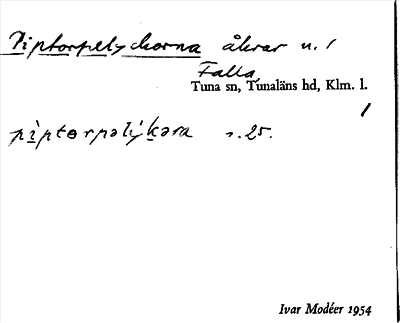 Piptorpelyckorna åkrar n. 1
Falla,
Tuna sn, Tunaläns hd, Klm. l.
1
pìptɵrpəlýkəra s. 25.
Ivar Modéer 1954